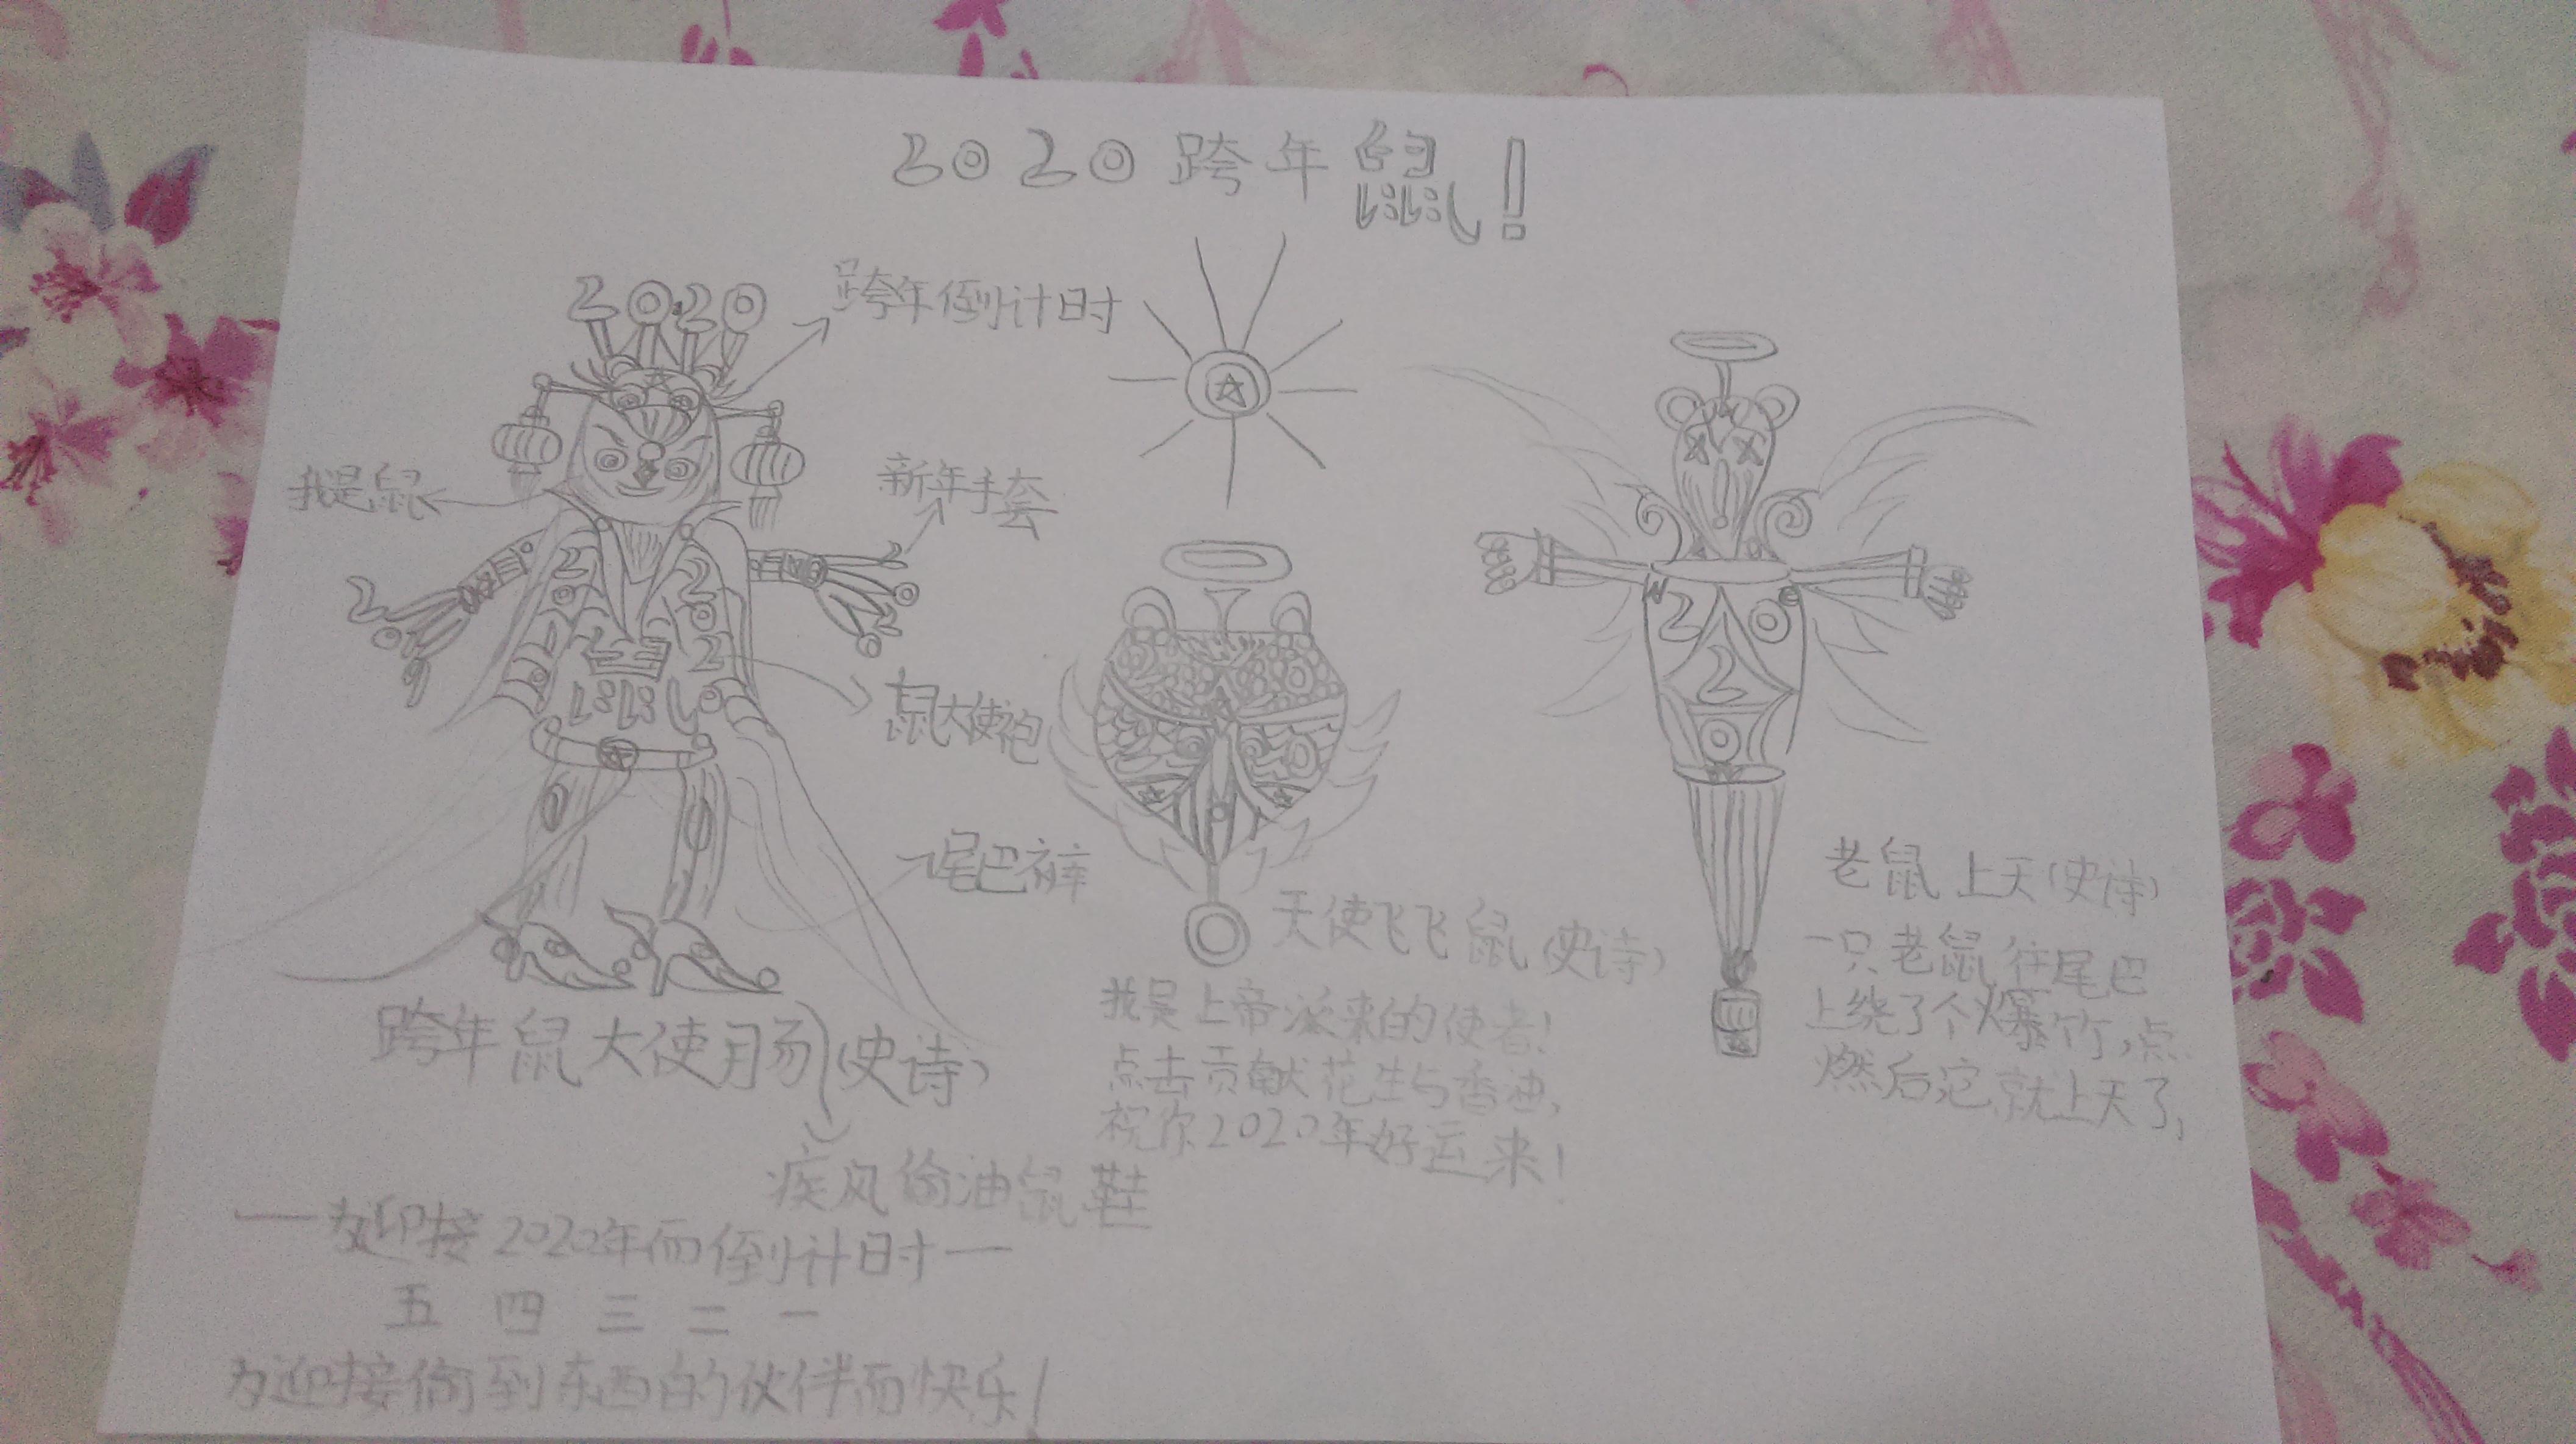 2020跨年鼠!
2020
跨年倒计时
我是鼠
新年手套
鼠大使袍
尾巴裤
跨年鼠大使肠(史诗)
疾风偷油鼠鞋
——为迎接2020年而倒计时—
五 四 三 二 一
为迎接偷到东西的伙伴而快乐!
天使飞飞鼠(史诗)
我是上帝派来的使者!
点击贡献花生与香油,
祝你2020年好运来!
老鼠上天(史诗)
一只老鼠往尾巴
上绕了个爆竹,点
燃后它就上天了,
2 0
2
0